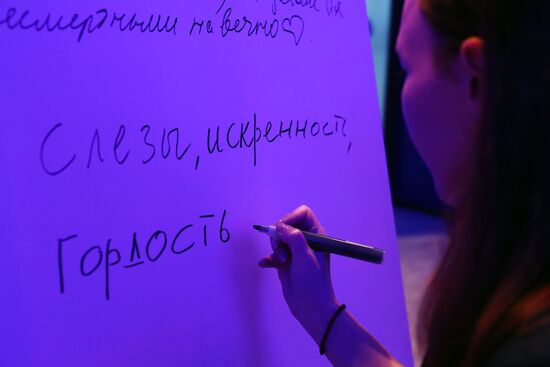 бессмертными навечно♡
Слезы, искренность,
Гордость